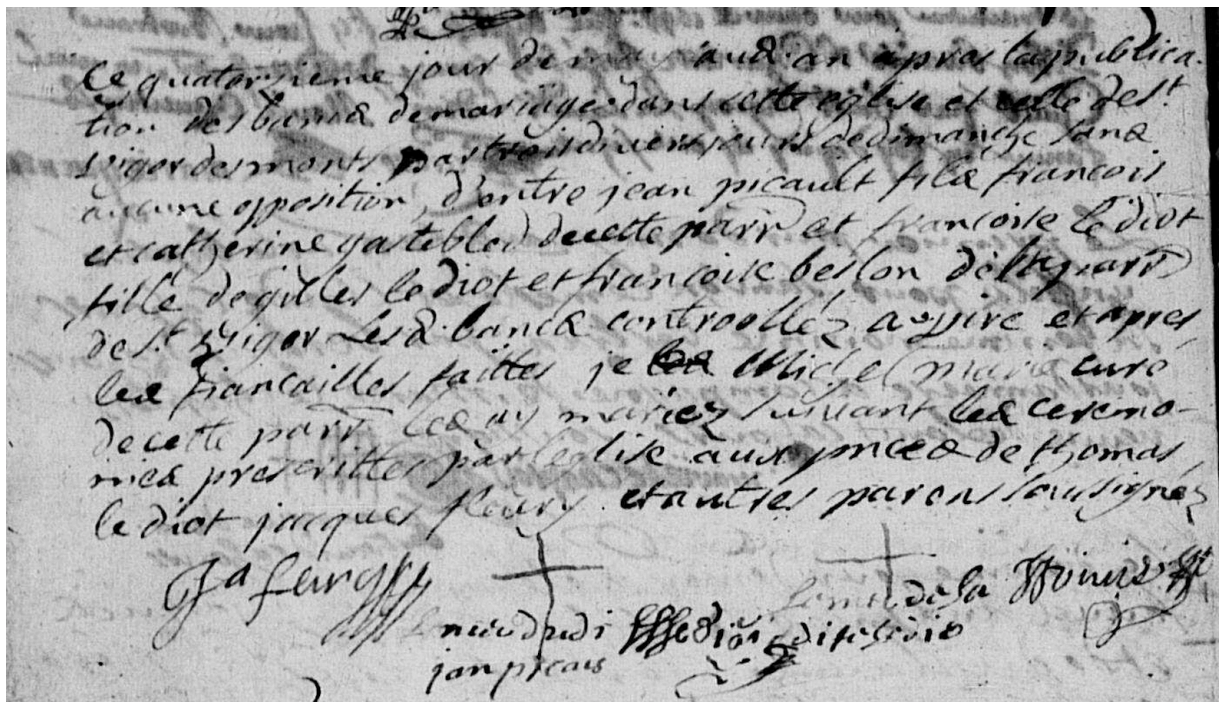 ce quatorzieme jour de may aud. an apres la publica-
tion des bancs de mariage dans cette eglise et celle de st.
vigor des monts par trois divers jours de dimanche sans
aucune opposition, d'entre jean picault fils françois
et catherine gasteblod de cette parr et françoise le diot
fille de gilles le diot et françoise beslon de la parr
de st. vigor Lesd. bancs controollez a vire et apres
les fiancailles faittes je Michel marie curé
de cette parr les ay mariez suivant les ceremo-
nies prescrittes par l'eglise aux pnces de thomas
le diot jacques fleury et autres parens sousignez
Ja fleury
dudi de la
jan picais